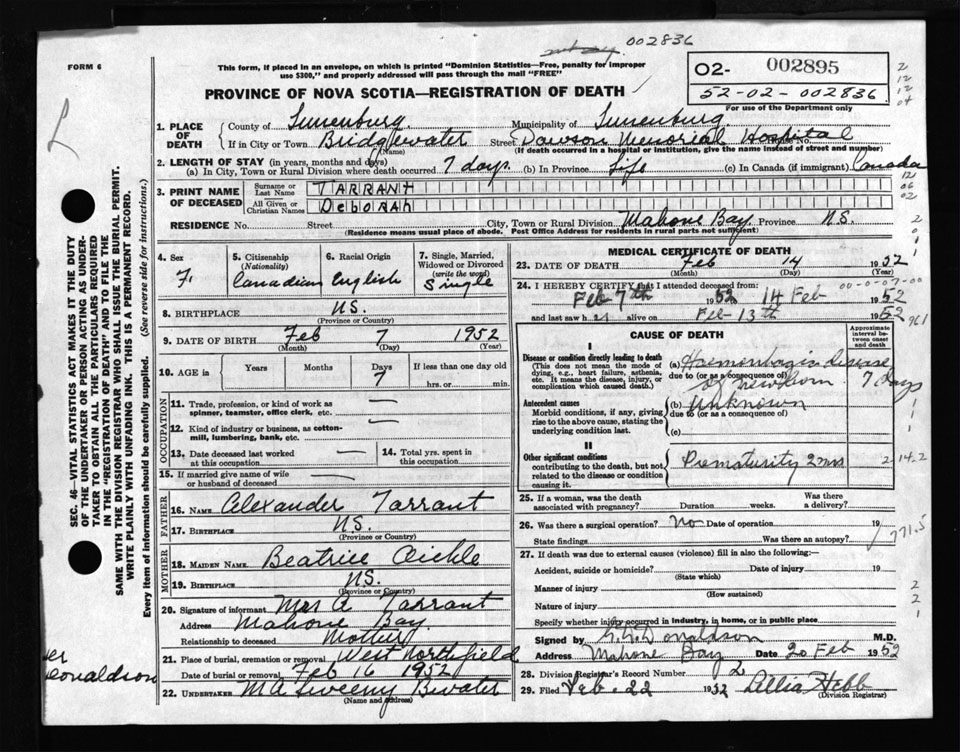 002836
FORM 6
This form, if placed in an envelope, on which is printed "Dominion Statistics—Free, penalty for improper
use $300," and properly addressed will pass through the mail "FREE"
02- 002895
52-02-002836
For use of the Department only
PROVINCE OF NOVA SCOTIA—REGISTRATION OF DEATH
1. PLACE OF DEATH { County of Lunenburg Municipality of Lunenburg
If in City or Town Bridgewater Street Dawson Memorial Hospital No.
(Name) (If death occurred in a hospital or institution, give the name instead of street and number)
2. LENGTH OF STAY (in years, months and days)
(a) In City, Town or Rural Division where death occurred 7 days (b) In Province Life (c) In Canada (if immigrant) Canada
3. PRINT NAME OF DECEASED { Surname or Last Name TARRANT
All Given or Christian Names DEBORAH
RESIDENCE No. Street City, Town or Rural Division Mahone Bay Province N.S.
(Residence means usual place of abode. Post Office Address for residents in rural parts not sufficient)
4. Sex F.
5. Citizenship (Nationality) Canadian
6. Racial Origin English
7. Single, Married, Widowed or Divorced (write the word) Single
8. BIRTHPLACE N.S.
(Province or Country)
9. DATE OF BIRTH Feb 7 1952
(Month) (Day) (Year)
10. AGE in { Years Months Days 7 If less than one day old
hrs. or min.
OCCUPATION
11. Trade, profession, or kind of work as spinner, teamster, office clerk, etc. —
12. Kind of industry or business, as cotton-mill, lumbering, bank, etc. —
13. Date deceased last worked at this occupation
14. Total yrs. spent in this occupation
15. If married give name of wife or husband of deceased —
FATHER
16. NAME Alexander Tarrant
17. BIRTHPLACE N.S.
(Province or Country)
MOTHER
18. MAIDEN NAME Beatrice Eickle
19. BIRTHPLACE N.S.
(Province or Country)
20. Signature of informant Mrs A Tarrant
Address Mahone Bay
Relationship to deceased Mother
21. Place of burial, cremation or removal West Northfield
Date of burial or removal Feb 16 1952
22. UNDERTAKER M A Sweeny Bwater
(Name and address)
MEDICAL CERTIFICATE OF DEATH
23. DATE OF DEATH Feb 14 1952
(Month) (Day) (Year)
24. I HEREBY CERTIFY that I attended deceased from:
Feb 7th 1952 14 Feb 1952
and last saw h er alive on Feb 13th 1952
CAUSE OF DEATH
Approximate interval between onset and death
I
Disease or condition directly leading to death
(This does not mean the mode of dying, e.g., heart failure, asthenia, etc. It means the disease, injury, or complication which caused death.)
(a) Haemorrhagic disease
due to (or as a consequence of) of Newborn 7 days
Antecedent causes
Morbid conditions, if any, giving rise to the above cause, stating the underlying condition last.
(b) Unknown
due to (or as a consequence of)
(c)
II
Other significant conditions
contributing to the death, but not related to the disease or condition causing it.
Prematurity 2 mos
25. If a woman, was the death associated with pregnancy? Duration weeks. Was there a delivery?
26. Was there a surgical operation? No Date of operation 19
State findings Was there an autopsy?
27. If death was due to external causes (violence) fill in also the following:—
Accident, suicide or homicide? Date of injury 19
(State which)
Manner of injury
(How sustained)
Nature of injury
Specify whether injury occurred in industry, in home, or in public place
Signed by Donaldson M.D.
Address Mahone Bay Date 20 Feb 1952
28. Division Registrar's Record Number 2
29. Filed Feb. 22 1952 Allia Hebb
(Division Registrar)
SEC. 46 VITAL STATISTICS ACT MAKES IT THE DUTY
OF THE UNDERTAKER OR PERSON ACTING AS UNDER-
TAKER TO OBTAIN ALL THE PARTICULARS REQUIRED
IN THE "REGISTRATION OF DEATH" AND TO FILE THE
SAME WITH THE DIVISION REGISTRAR WHO SHALL ISSUE THE BURIAL PERMIT.
WRITE PLAINLY WITH UNFADING INK. THIS IS A PERMANENT RECORD.
Every item of information should be carefully supplied. (See reverse side for instructions.)